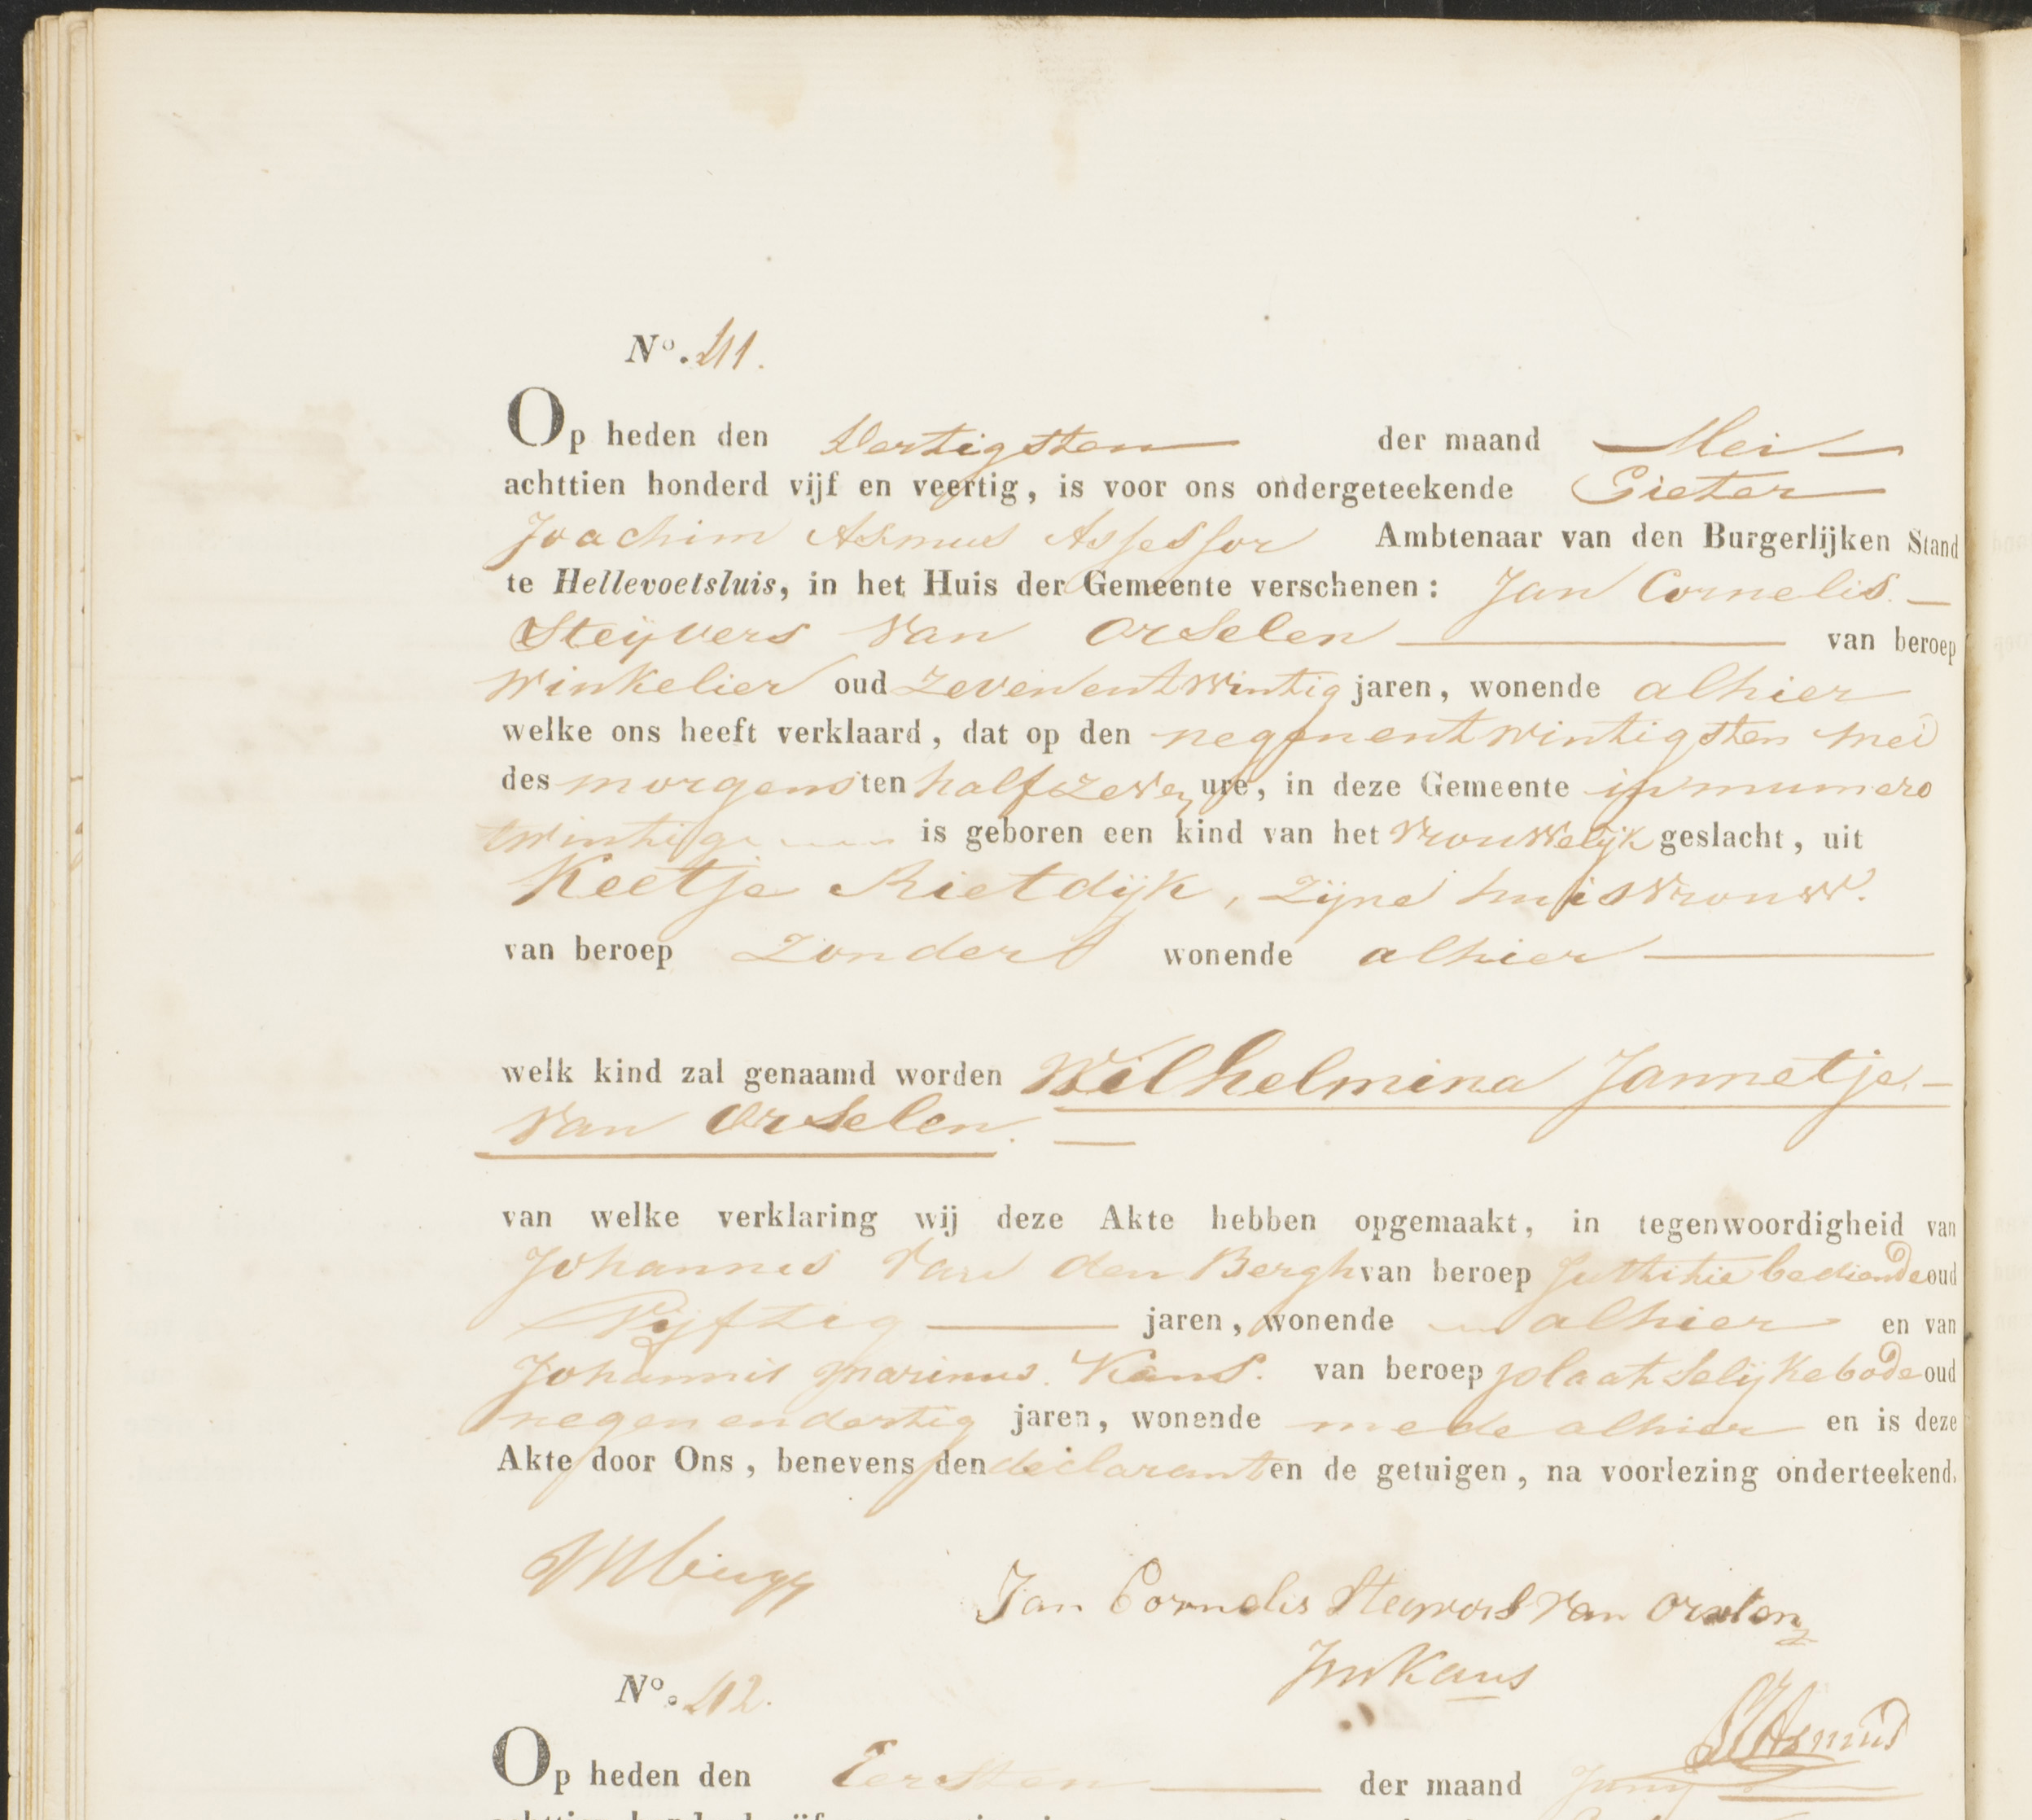 No. 41.
Op heden den Dertigsten der maand Mei
achttien honderd vijf en veertig, is voor ons ondergeteekende Pieter
Joachim Asmus Assessor Ambtenaar van den Burgerlijken Stand
te Hellevoetsluis, in het Huis der Gemeente verschenen: Jan Cornelis
Steijvers van Orselen van beroep
winkelier oud zevenentwintig jaren, wonende alhier
welke ons heeft verklaard, dat op den negenentwintigsten mei
des morgens ten half zeven ure, in deze Gemeente in numero
twintig is geboren een kind van het vrouwelijk geslacht, uit
Keetje Rietdijk, zijne huisvrouw.
van beroep Zonder wonende alhier
welk kind zal genaamd worden Wilhelmina Jannetje
van Orselen.
van welke verklaring wij deze Akte hebben opgemaakt, in tegenwoordigheid van
Johannes van den Bergh van beroep Justitie bediende oud
Vijftig jaren, wonende alhier en van
Johannis Marinus Kans. van beroep plaatselijke bode oud
negenendertig jaren, wonende mede alhier en is deze
Akte door Ons, benevens den declarant en de getuigen, na voorlezing onderteekend.
Jan Cornelis Steijvers van Orselen
JM Kans
PJAsmus
No. 42.
Op heden den Eersten der maand Junij